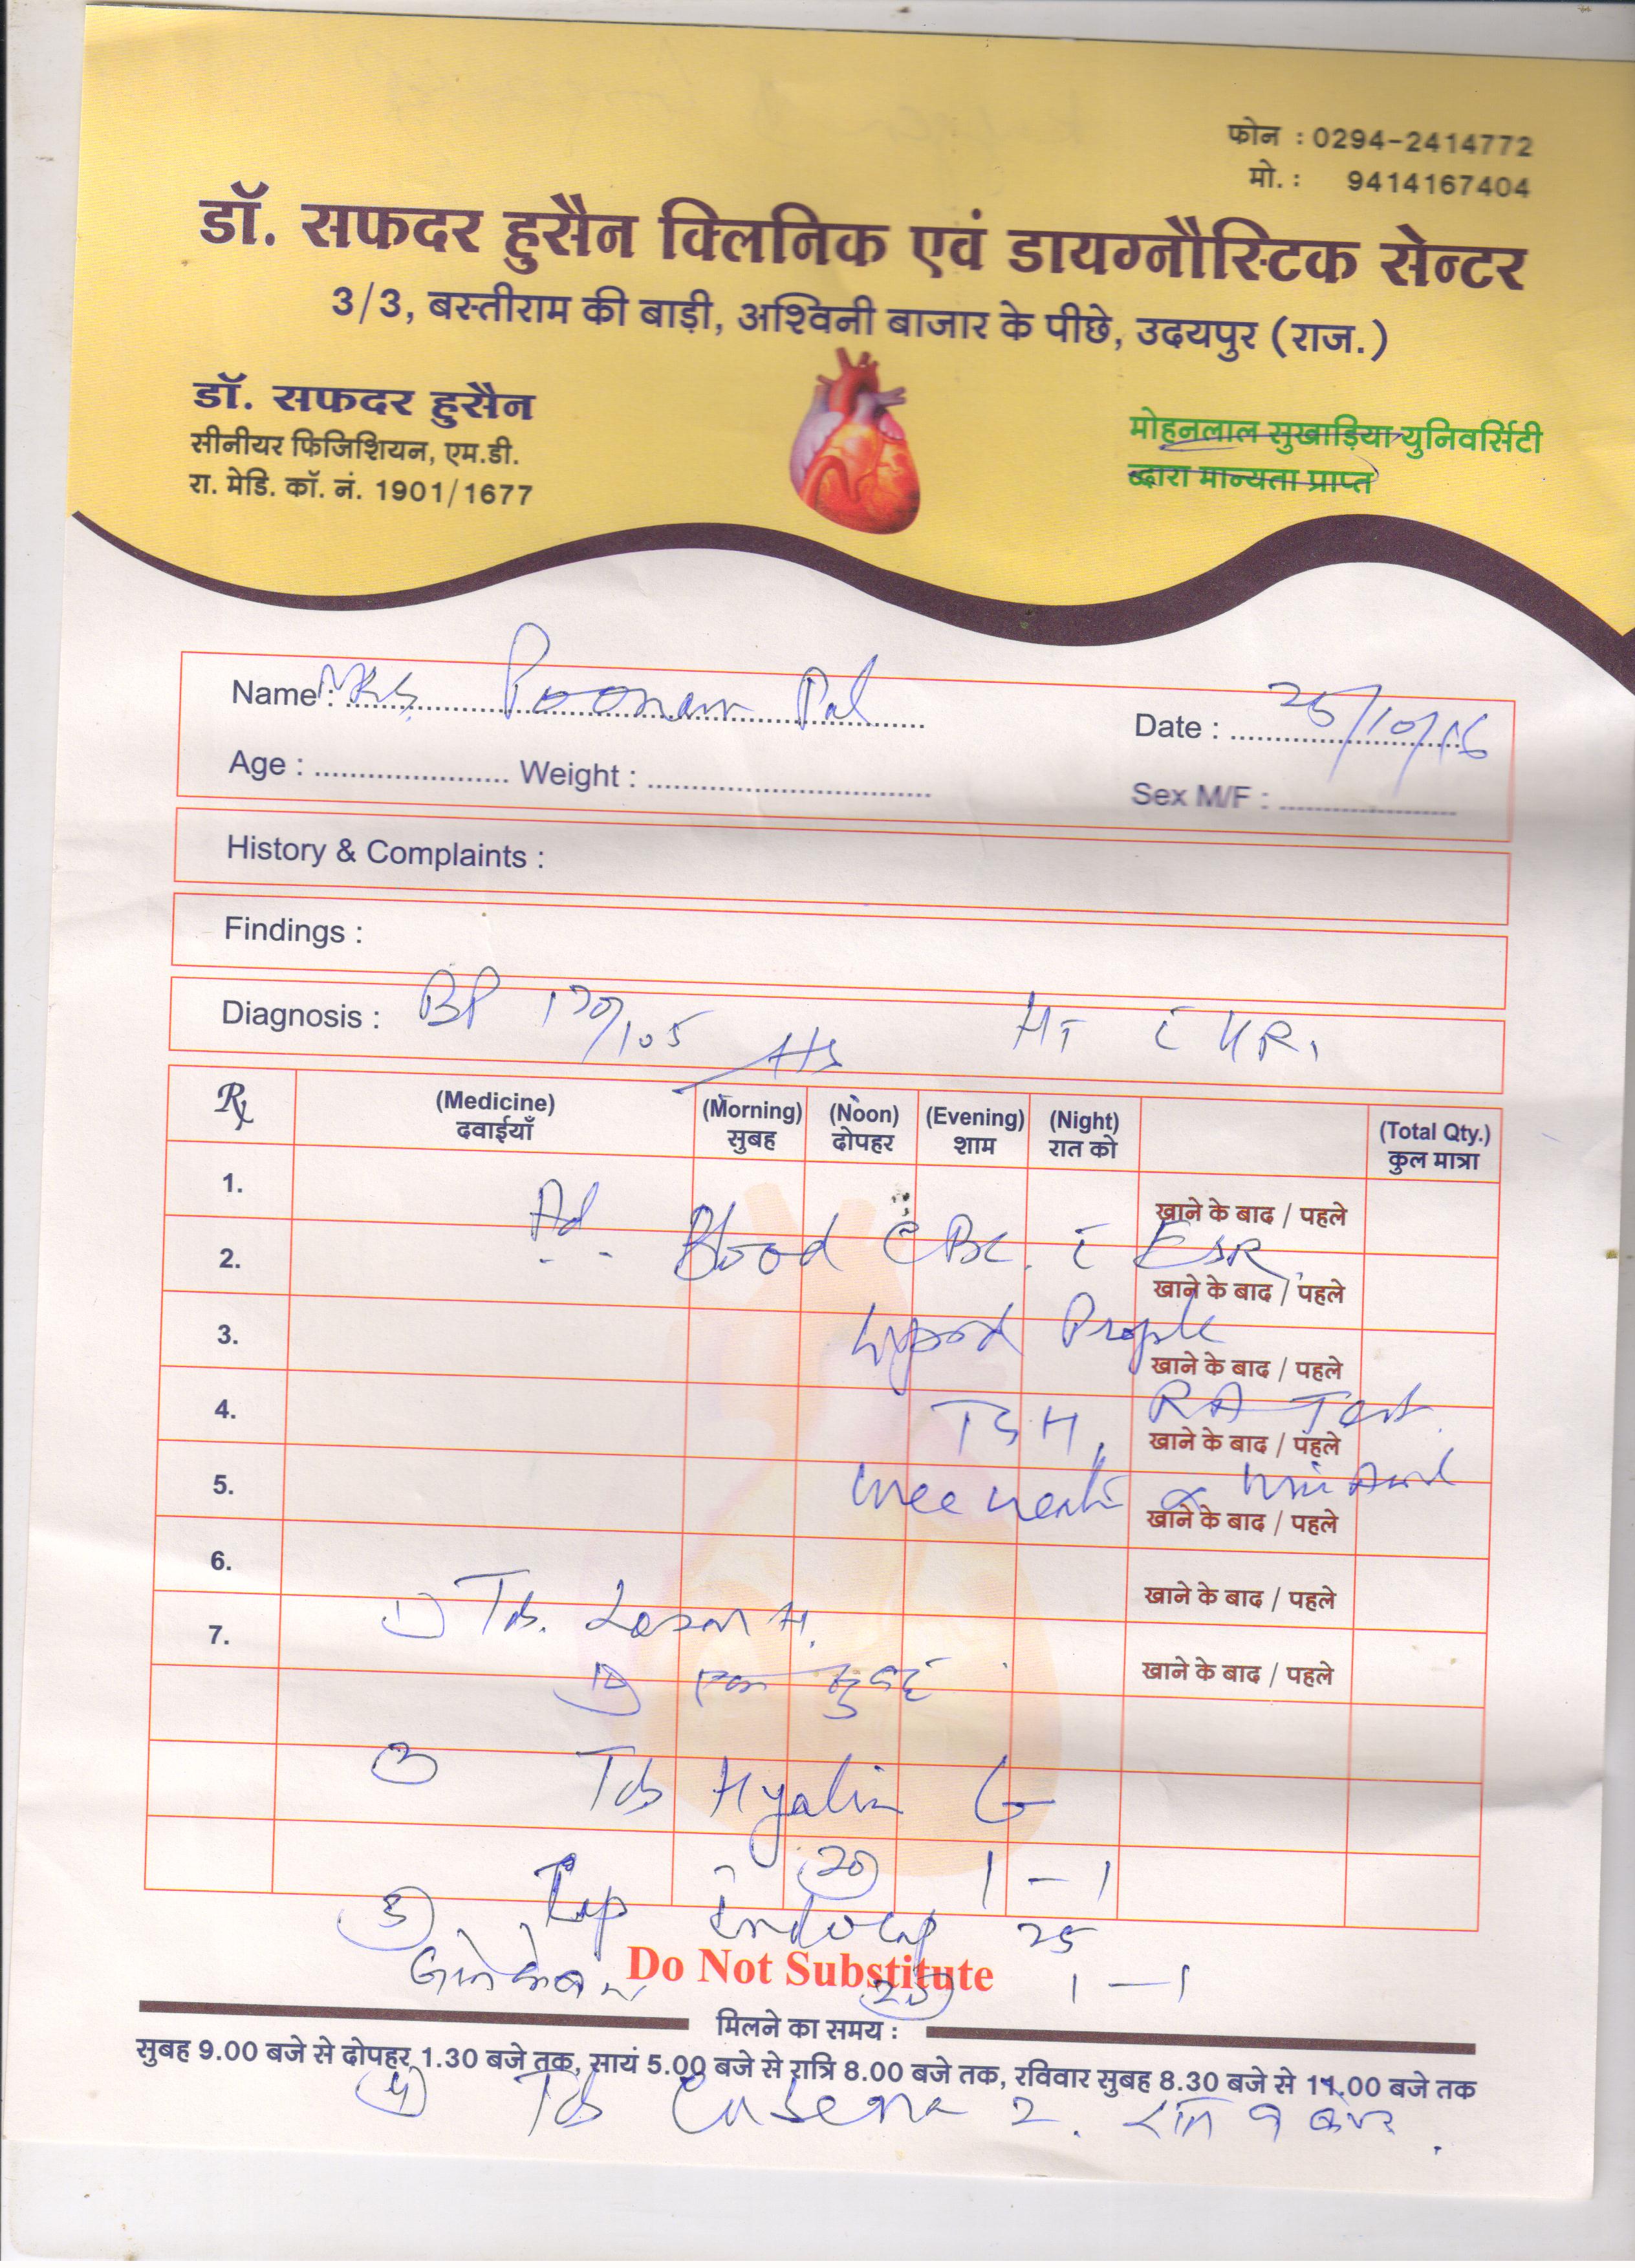 फोन : 0294-2414772
मो. : 9414167404
डॉ. सफदर हुसैन क्लिनिक एवं डायग्नौस्टिक सेन्टर
3/3, बस्तीराम की बाड़ी, अश्विनी बाजार के पीछे, उदयपुर (राज.)
डॉ. सफदर हुसैन
सीनीयर फिजिशियन, एम.डी.
रा. मेडि. कॉ. नं. 1901/1677
मोहनलाल सुखाड़िया युनिवर्सिटी
द्वारा मान्यता प्राप्त
Name : Mrs. Poonam Pal Date : 25/10/16
Age : Weight : Sex M/F :
History & Complaints :
Findings :
Diagnosis : BP 170/105
Rx (Medicine) (Morning) (Noon) (Evening) (Night) (Total Qty.)
दवाईयाँ सुबह दोपहर शाम रात को कुल मात्रा
1. खाने के बाद / पहले
Ad. Blood CBC. c ESR
2. खाने के बाद / पहले
3. खाने के बाद / पहले
4. TSH, RA Test खाने के बाद / पहले
5. खाने के बाद / पहले
6. खाने के बाद / पहले
1) Tab. H.
7. खाने के बाद / पहले
10
Tab Hyalin G
20 1 - 1
3) Cap Indocap 25
Do Not Substitute
1 - 1
मिलने का समय :
सुबह 9.00 बजे से दोपहर 1.30 बजे तक, सायं 5.00 बजे से रात्रि 8.00 बजे तक, रविवार सुबह 8.30 बजे से 11.00 बजे तक
4) Tab